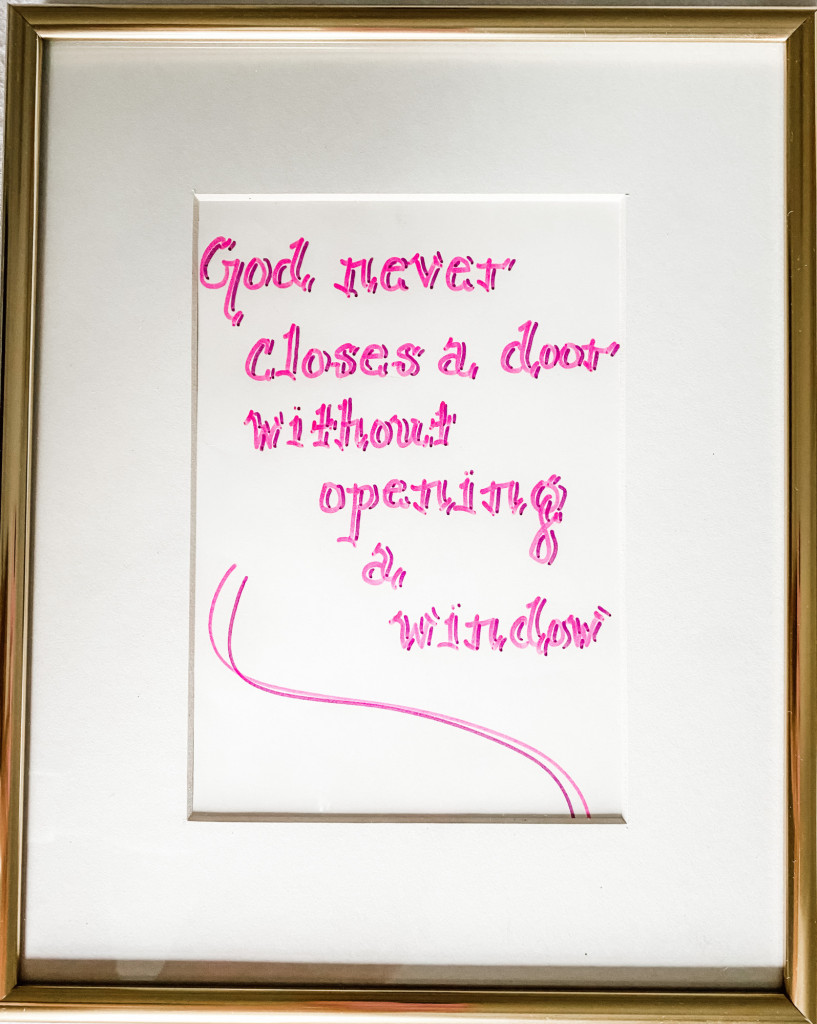 God never
closes a door
without
opening
a
window